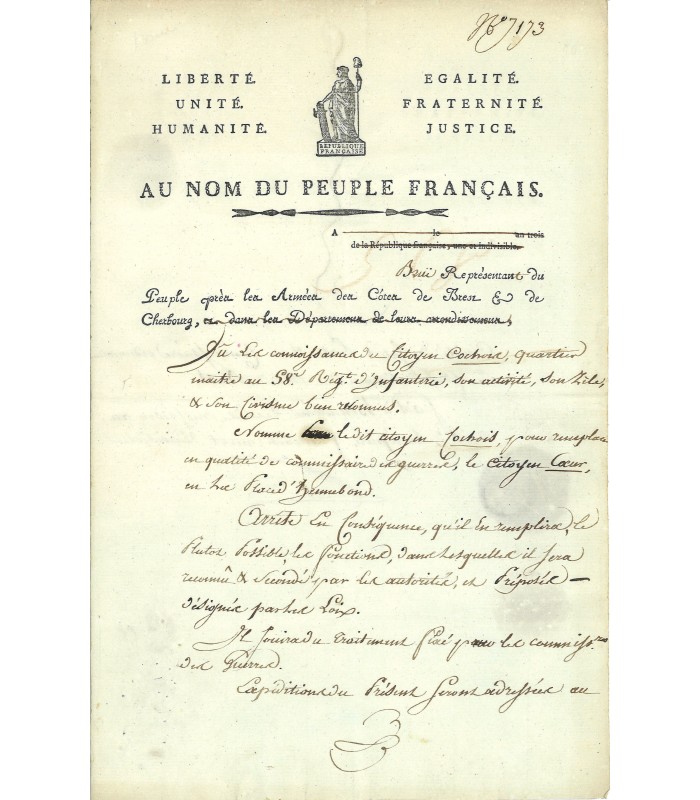 No 7173
LIBERTÉ. EGALITÉ.
UNITÉ. FRATERNITÉ.
HUMANITÉ. JUSTICE.
RÉPUBLIQUE
FRANÇAISE
AU NOM DU PEUPLE FRANÇAIS.
A le an trois
de la République française, une et indivisible.
Brüe Représentant du
Peuple près les Armées des Côtes de Brest & de
Cherbourg, et dans les Départemens de leurs arrondissemens,
Vu les connoissances du Citoyen Cochois, quartier
maitre au 58e Régt. d'Infanterie, son activité, son Zèle,
& son Civisme bien reconnus.
Nomme ledit citoyen Cochois, pour remplacer
en qualité de commissaire des guerres, le Citoyen Cœur,
en la Place d'hennebond.
Arrête En Conséquence, qu'il En remplira, le
Plutot Possible les fonctions, dans lesquelles il sera
reconnû & secondé par les autorités, et Préposés
désignés par les Loix.
Il Jouira du traitement fixé pour les commissres
des Guerres.
Expéditions du Présent seront adressées au